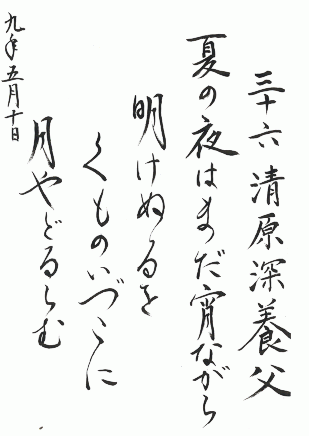 三十六 清原深養父
夏の夜はまだ宵ながら
明けぬるを
くものいづこに
月やどるらむ
九年五月十日